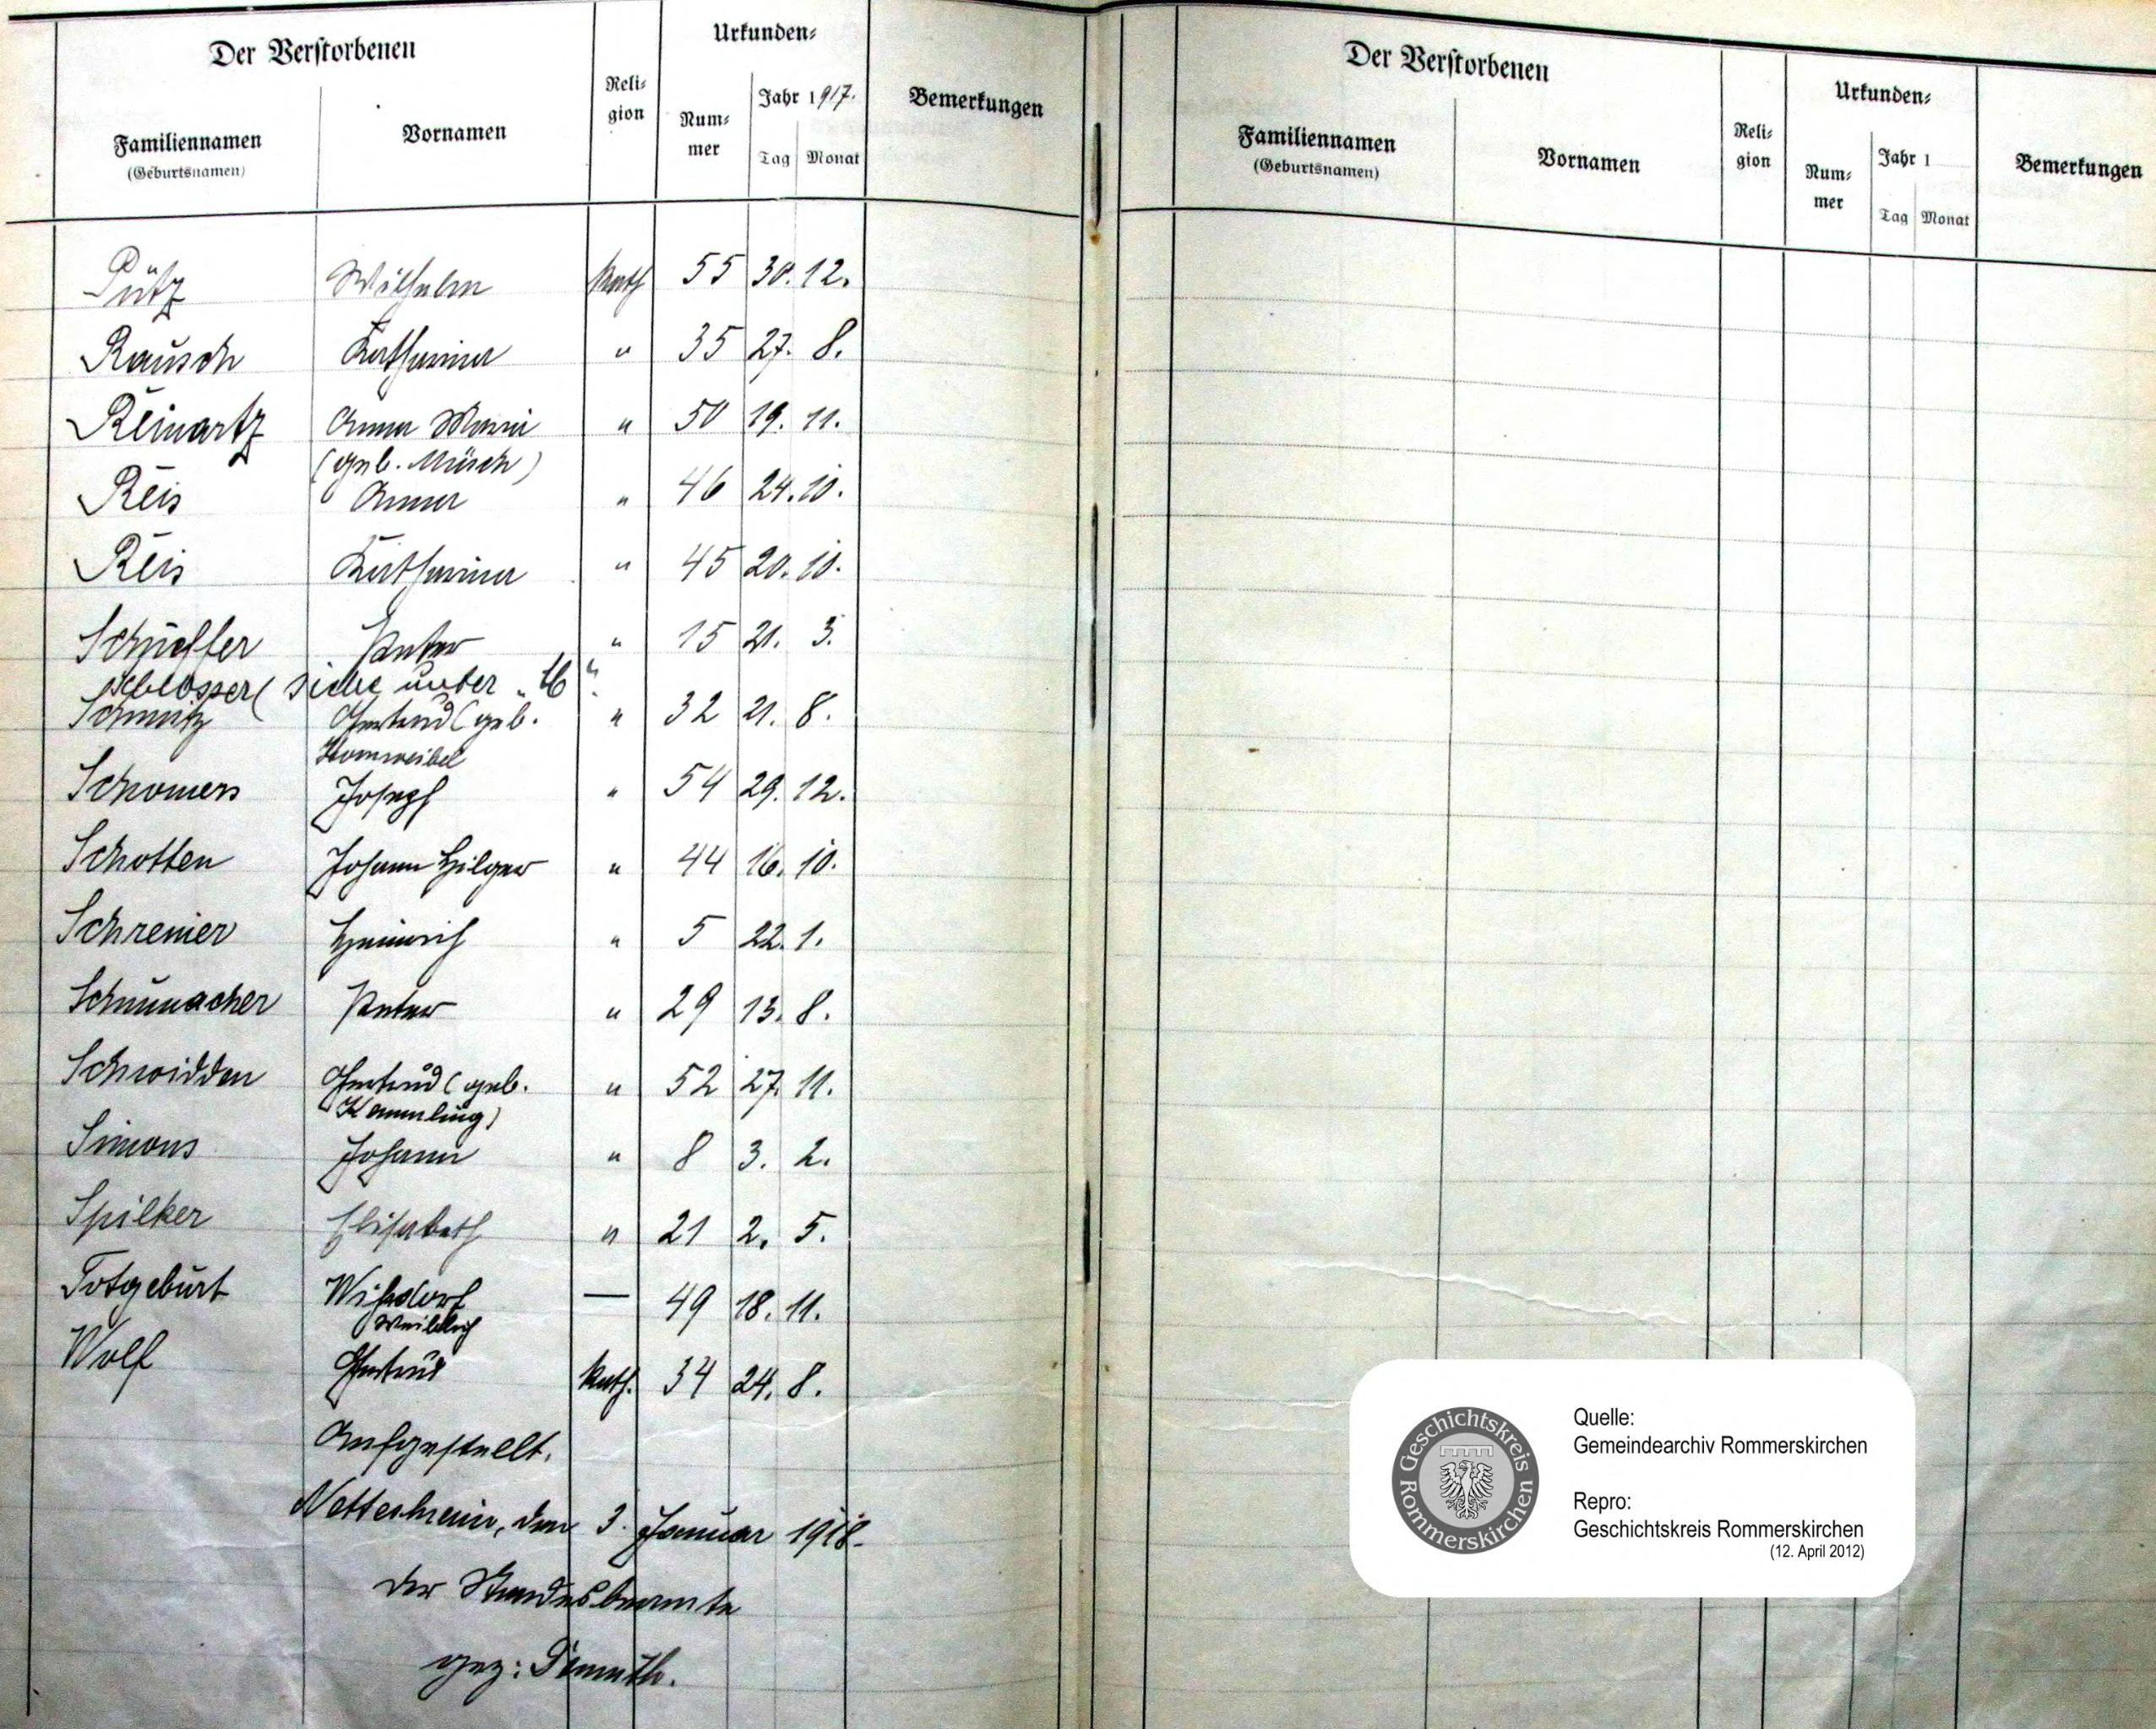 Der Verstorbenen
Urkunden-
Familiennamen
(Geburtsnamen)
Vornamen
Reli-
gion
Num-
mer
Jahr 1917.
Tag Monat
Bemerkungen
Pütz Wilhelm Kath 55 30. 12.
Rausch Katharina " 35 27. 8.
Reinartz Anna Maria " 50 19. 11.
(geb. Müsch)
Reis Anna " 46 24. 10.
Reis Katharina " 45 20. 10.
Peter " 15 21. 3.
Schlösser (siehe unter
Schmitz Gertrud (geb. " 32 21. 8.
Schomers Joseph " 54 29. 12.
Schotten Johann Hilger " 44 16. 10.
Schreiner Heinrich " 5 22. 1.
Schumacher Peter " 29 13. 8.
Schwidden Gertrud (geb. " 52 27. 11.
Kemmling)
Simons Johann " 8 3. 2.
Spilker Elisabeth " 21 2. 5.
Totgeburt Wißdorf — 49 18. 11.
weiblich
Wolf Gertrud Kath. 34 24. 8.
Aufgestellt.
Nettesheim, den 3. Januar 1918.
Der Standesbeamte
gez:
Der Verstorbenen
Urkunden-
Familiennamen
(Geburtsnamen)
Vornamen
Reli-
gion
Num-
mer
Jahr 1
Tag Monat
Bemerkungen
Geschichtskreis Rommerskirchen
Quelle:
Gemeindearchiv Rommerskirchen
Repro:
Geschichtskreis Rommerskirchen
(12. April 2012)